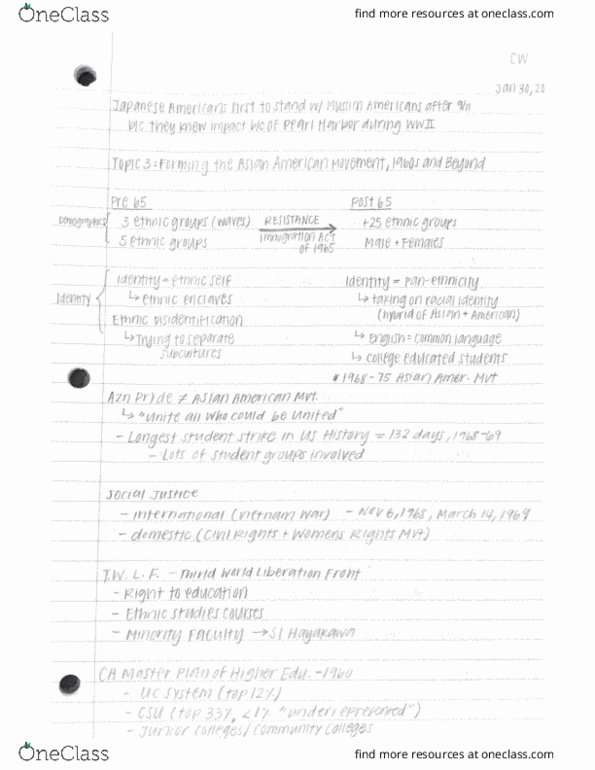 OneClass
find more resources at oneclass.com
CW
Jan 30, 20
Japanese Americans first to stand w/ Muslim Americans after 9/11
b/c they knew impact b/c of Pearl Harbor during WWII
Topic 3: Forming the Asian American Movement, 1960s and Beyond
Pre 65 Post 65
Demographics 3 ethnic groups (waves) RESISTANCE +25 ethnic groups
5 ethnic groups Immigration ACT OF 1965 Male + Females
Identity Identity = ethnic self Identity = pan-ethnicity
↳ ethnic enclaves ↳ taking on racial identity
(hybrid of Asian + American)
Ethnic Disidentification
↳ Trying to separate ↳ English = common language
subcultures ↳ college educated students
* 1968-75 Asian Amer. Mvt
Azn Pryde ≠ Asian American Mvt.
↳ "unite all who could be united"
- Longest student strike in US History = 132 days, 1968-69
- Lots of student groups involved
Social Justice
- international (Vietnam War) - Nov 6, 1968, March 14, 1969
- domestic (Civil Rights + Womens Rights Mvt)
T.W.L.F. - Third World Liberation Front
- Right to education
- Ethnic studies courses
- Minority Faculty → S.I. Hayakawa
CA Master Plan of Higher Edu. - 1960
- UC System (top 12%)
- CSU (top 33%, <1% "underrepresented")
- Junior Colleges/Community Colleges
OneClass
find more resources at oneclass.com